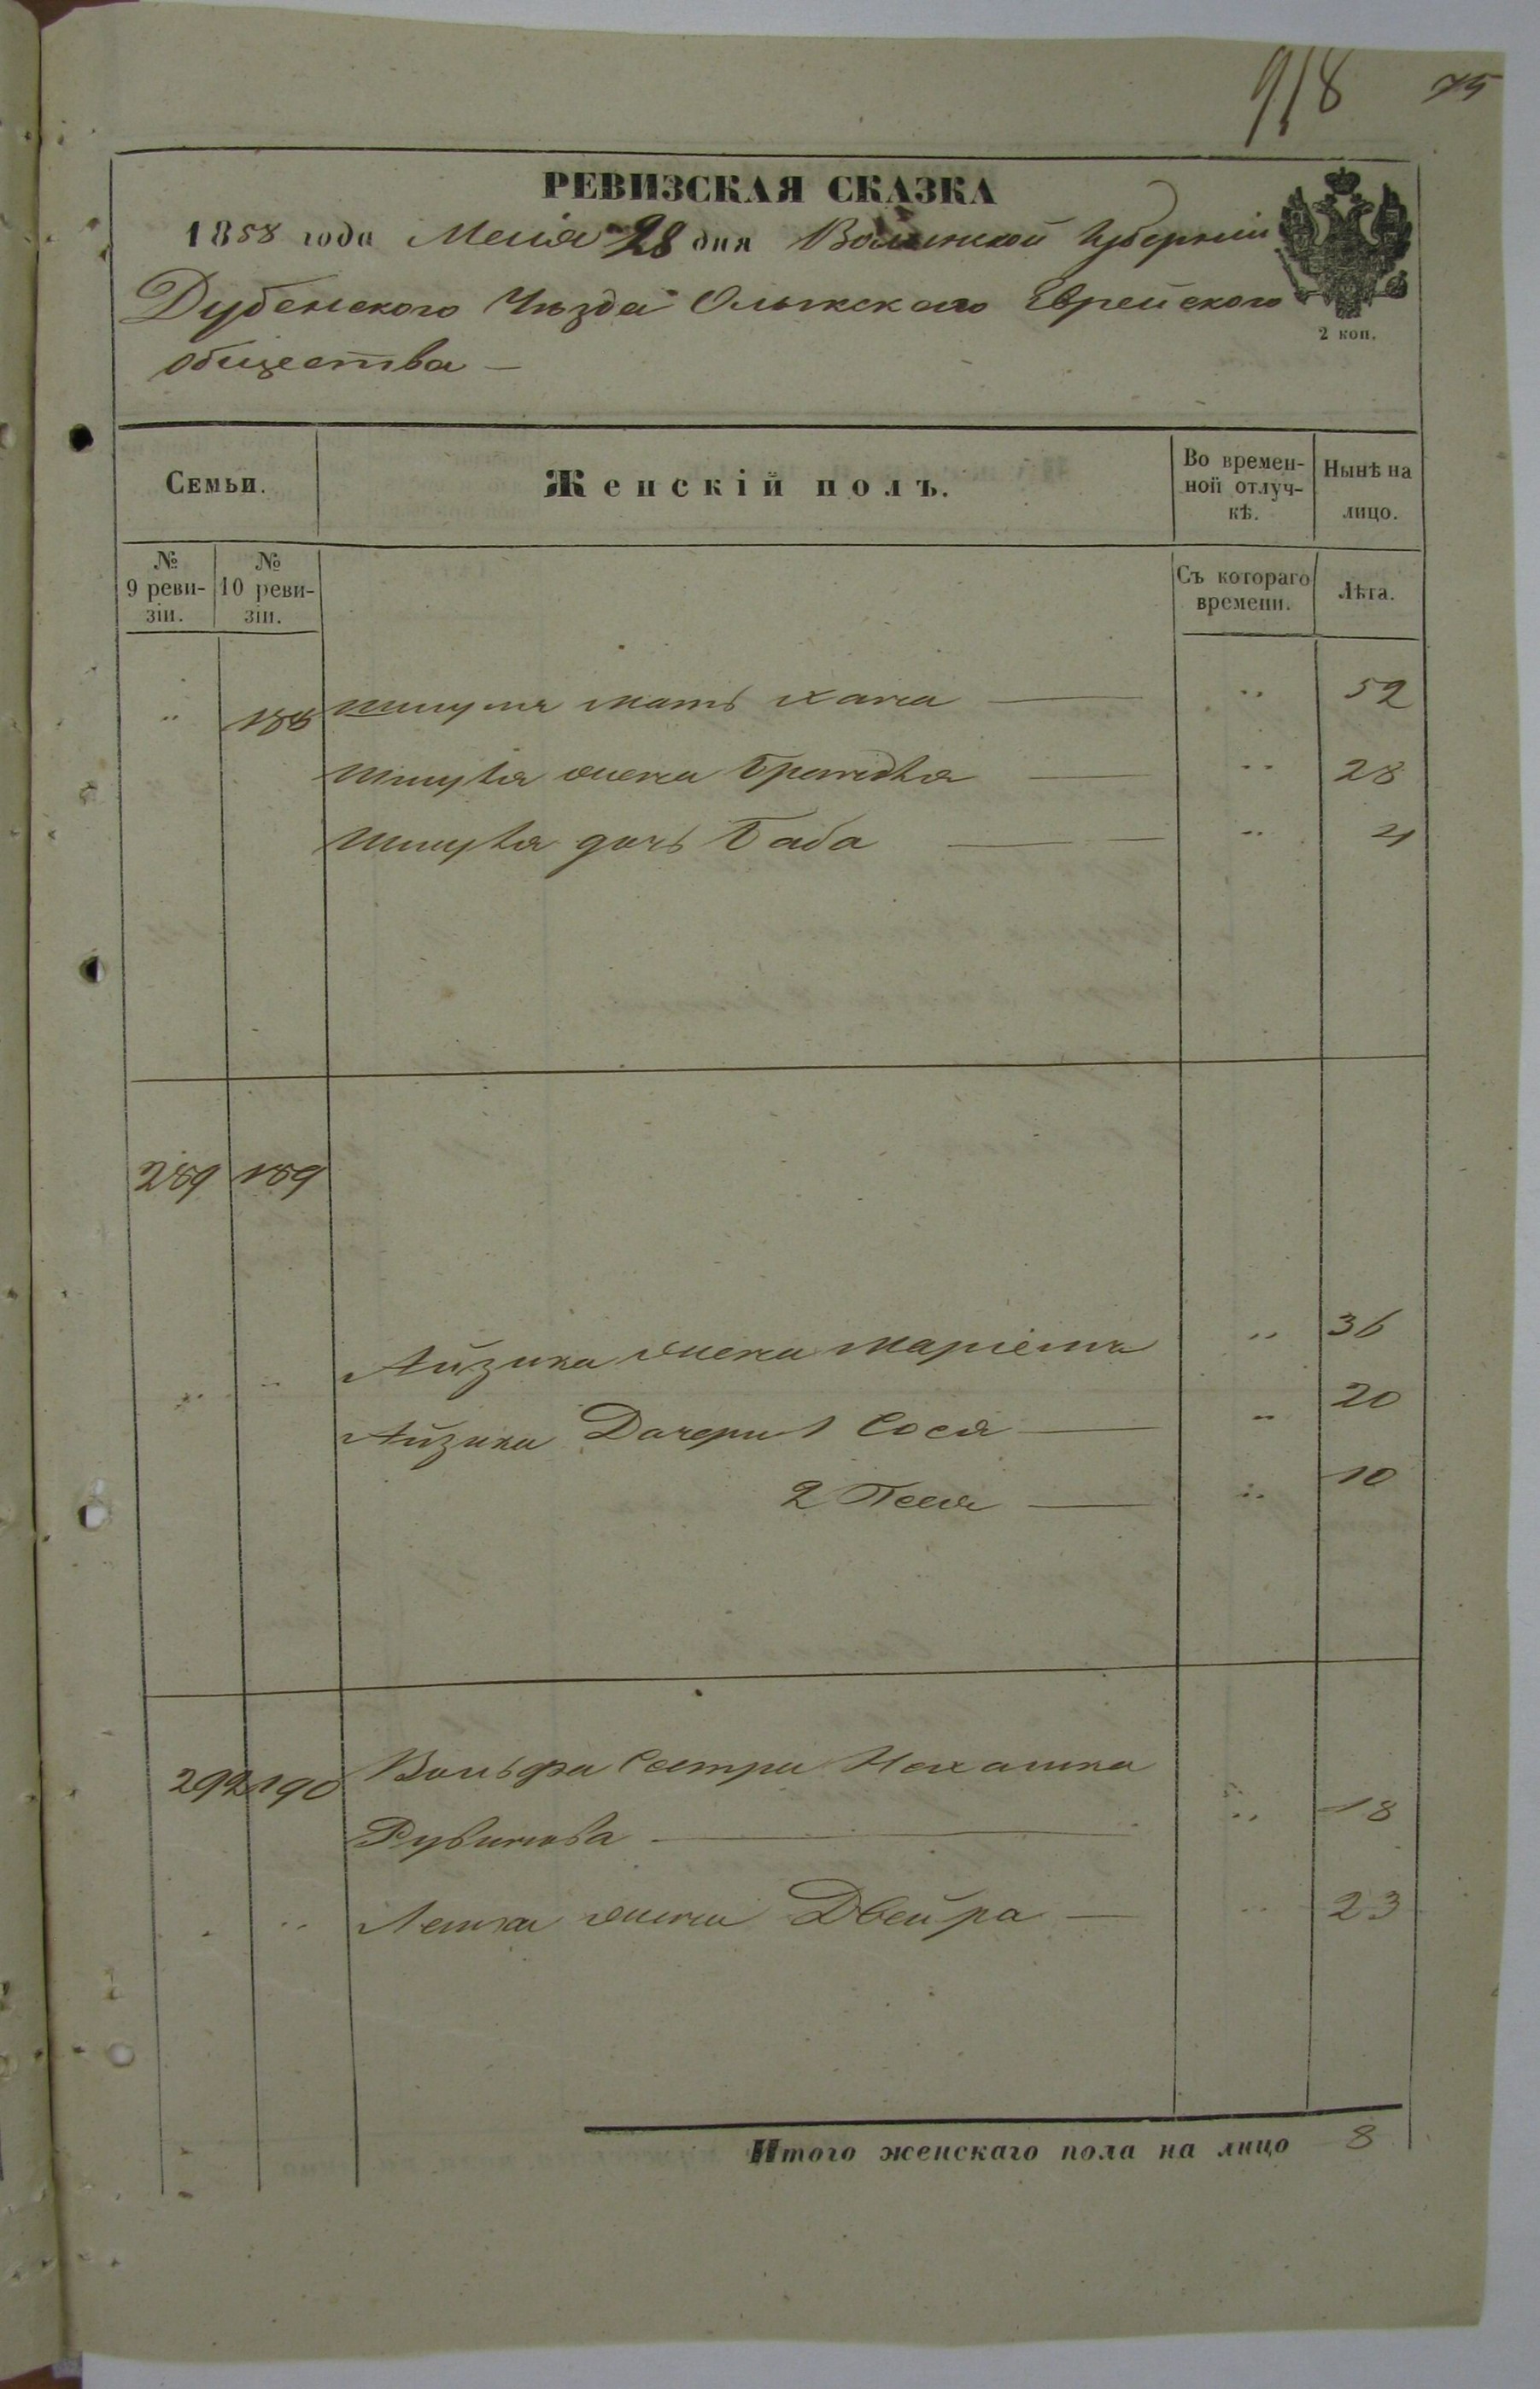 918 75
РЕВИЗСКАЯ СКАЗКА
1858 года Мая 28 дня Волынской Губерніи
Дубенского Уѣзда Олыкского Еврейского
общества —
2 коп.
Семьи. Женскій полъ. Во времен-ной отлуч-кѣ. Нынѣ на лицо.
№ 9 реви-зіи. № 10 реви-зіи. Съ котораго времени. Лѣта.
" 188 мать Хана — " 52
жена — " 28
дочь Баба — " 4
289 189
" " Айзика жена Маріемъ " 36
Айзика Дочери 1 Сося — " 20
2 Песя — " 10
292 190 Вольфа Сестра Нехамка
Рувинова — " 18
" жена Двейра — " 23
Итого женскаго пола на лицо 8